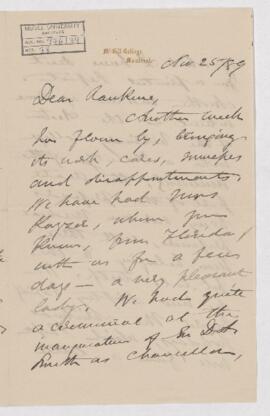 McGILL UNIVERSITY
ARCHIVES
ACC. NO.
REF.
McGill College,
Montreal.
Nov 25/89
Dear Rankine,
Another week
has flown by, bringing
its work, cares, successes
and disappointments.
We have had Mrs
whom you
know, from Florida
with us for a few
days — a very pleasant
lady. We had quite
a ceremonial at the
inauguration of Sir D. A.
Smith as chancellor,